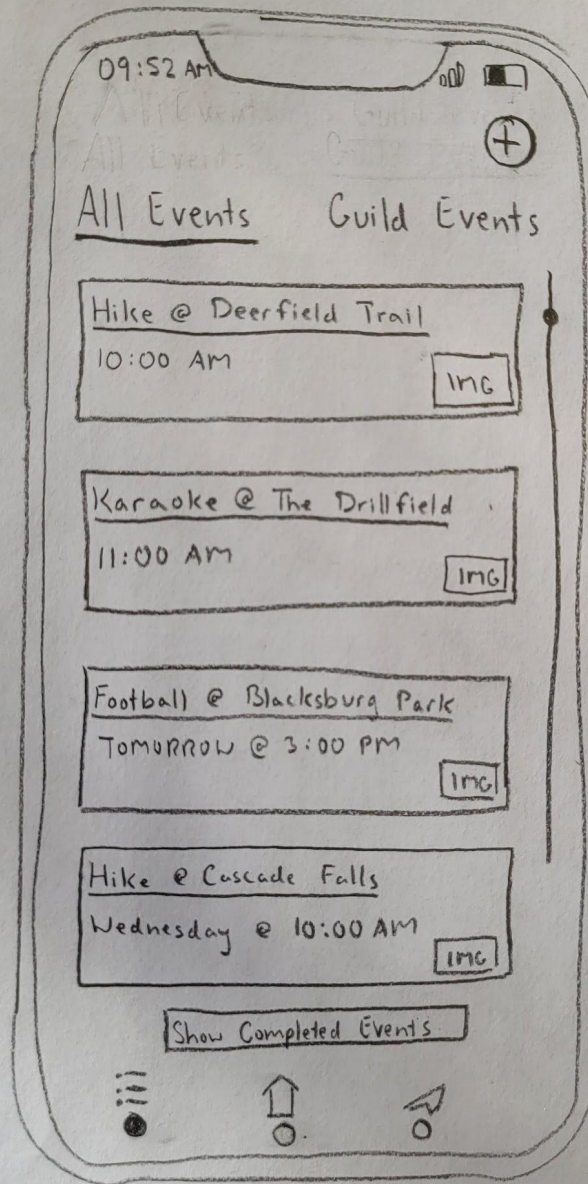 09:52 AM
All Events Guild Events
All Events Guild Events
Hike @ Deerfield Trail
10:00 AM
IMG
Karaoke @ The Drillfield
11:00 AM
IMG
Football @ Blacksburg Park
TOMORROW @ 3:00 PM
IMG
Hike @ Cascade Falls
Wednesday @ 10:00 AM
IMG
Show Completed Events